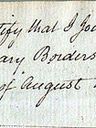 tify that I Joh
ary Borders
of August